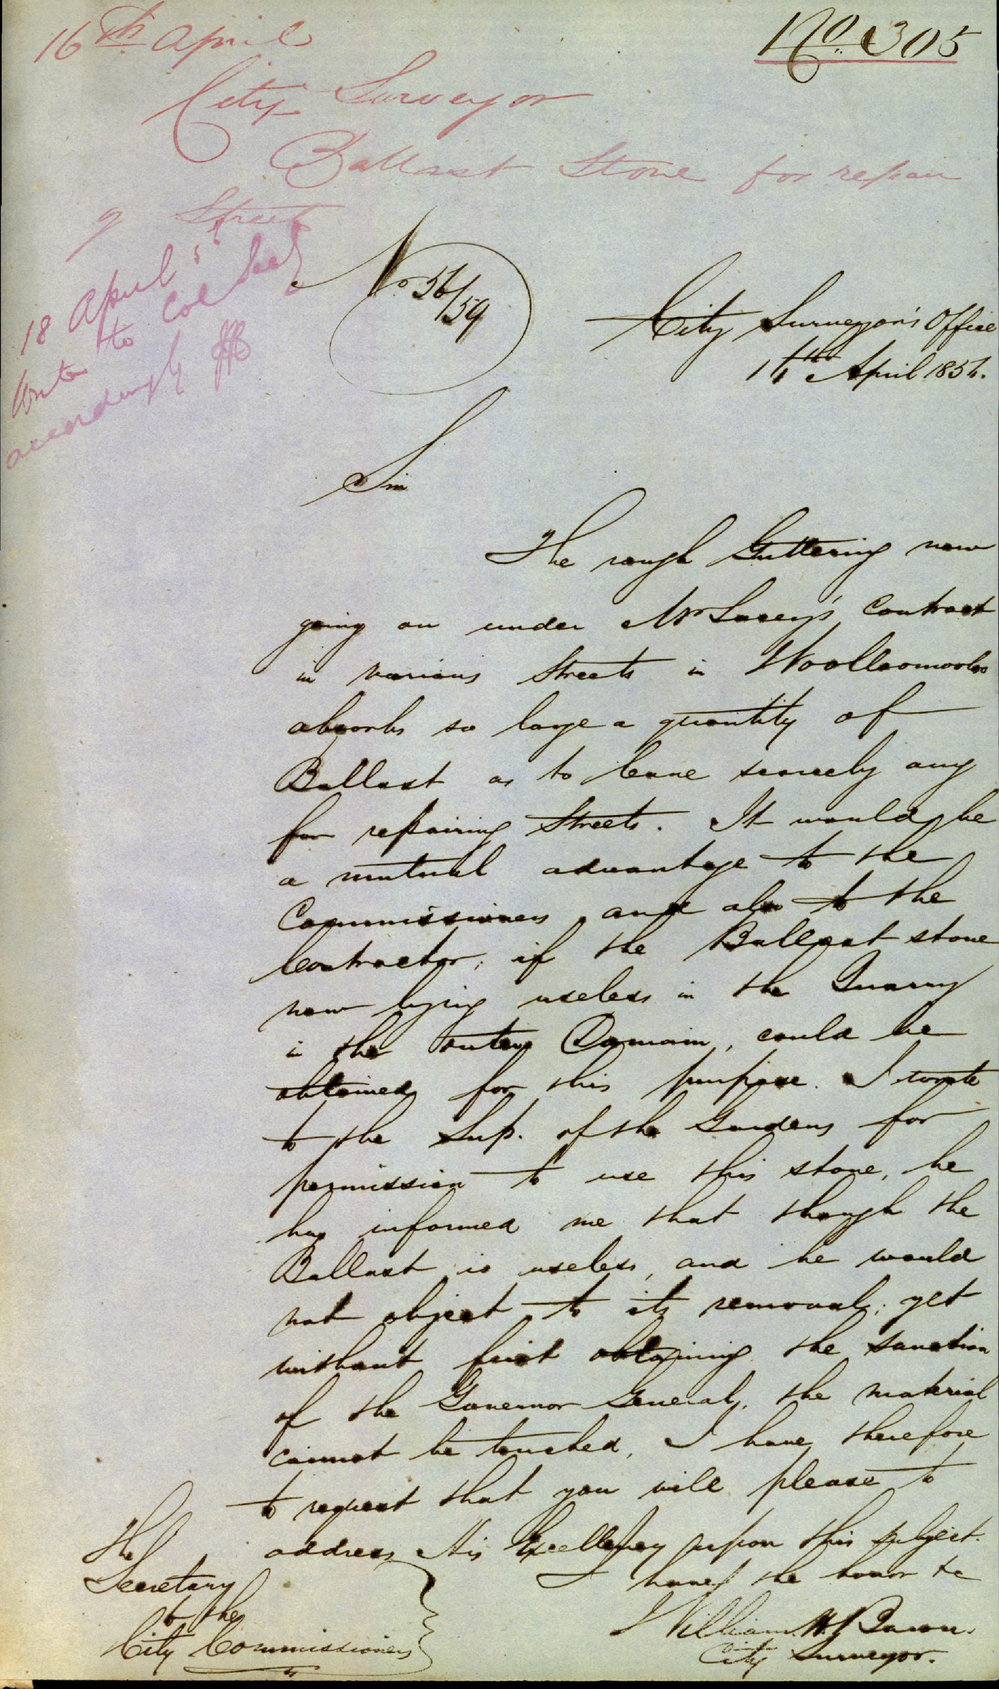 16th April
No. 305
City Surveyor
Ballast Stone for repair
of Streets
18 April 56
Write to Col
accordingly
No 56/59
City Surveyor's Office
14th April 1856.
Sir
The rough Guttering now
going on under Mr 
contract
in various Streets in Woolloomooloo
absorbs so large a quantity of
Ballast as to leave scarcely any
for repairing Streets. It would be
a mutual advantage to the
Commissioners and also to the
Contractor; if the Ballast stone
now lying useless in the Quarry
in the outer Domain, could be
obtained for this purpose. I wrote
to the Sup. of the Gardens for
permission to use this stone, he
has informed me that though the
Ballast is useless, and he would
not object to its removal; yet
without first obtaining the sanction
of the Governor General, the material
cannot be touched, I have therefore
to request that you will please to
address His Excellency upon this subject.
I have the honor &c
William
City Surveyor.
The
Secretary
to the
City Commissioners